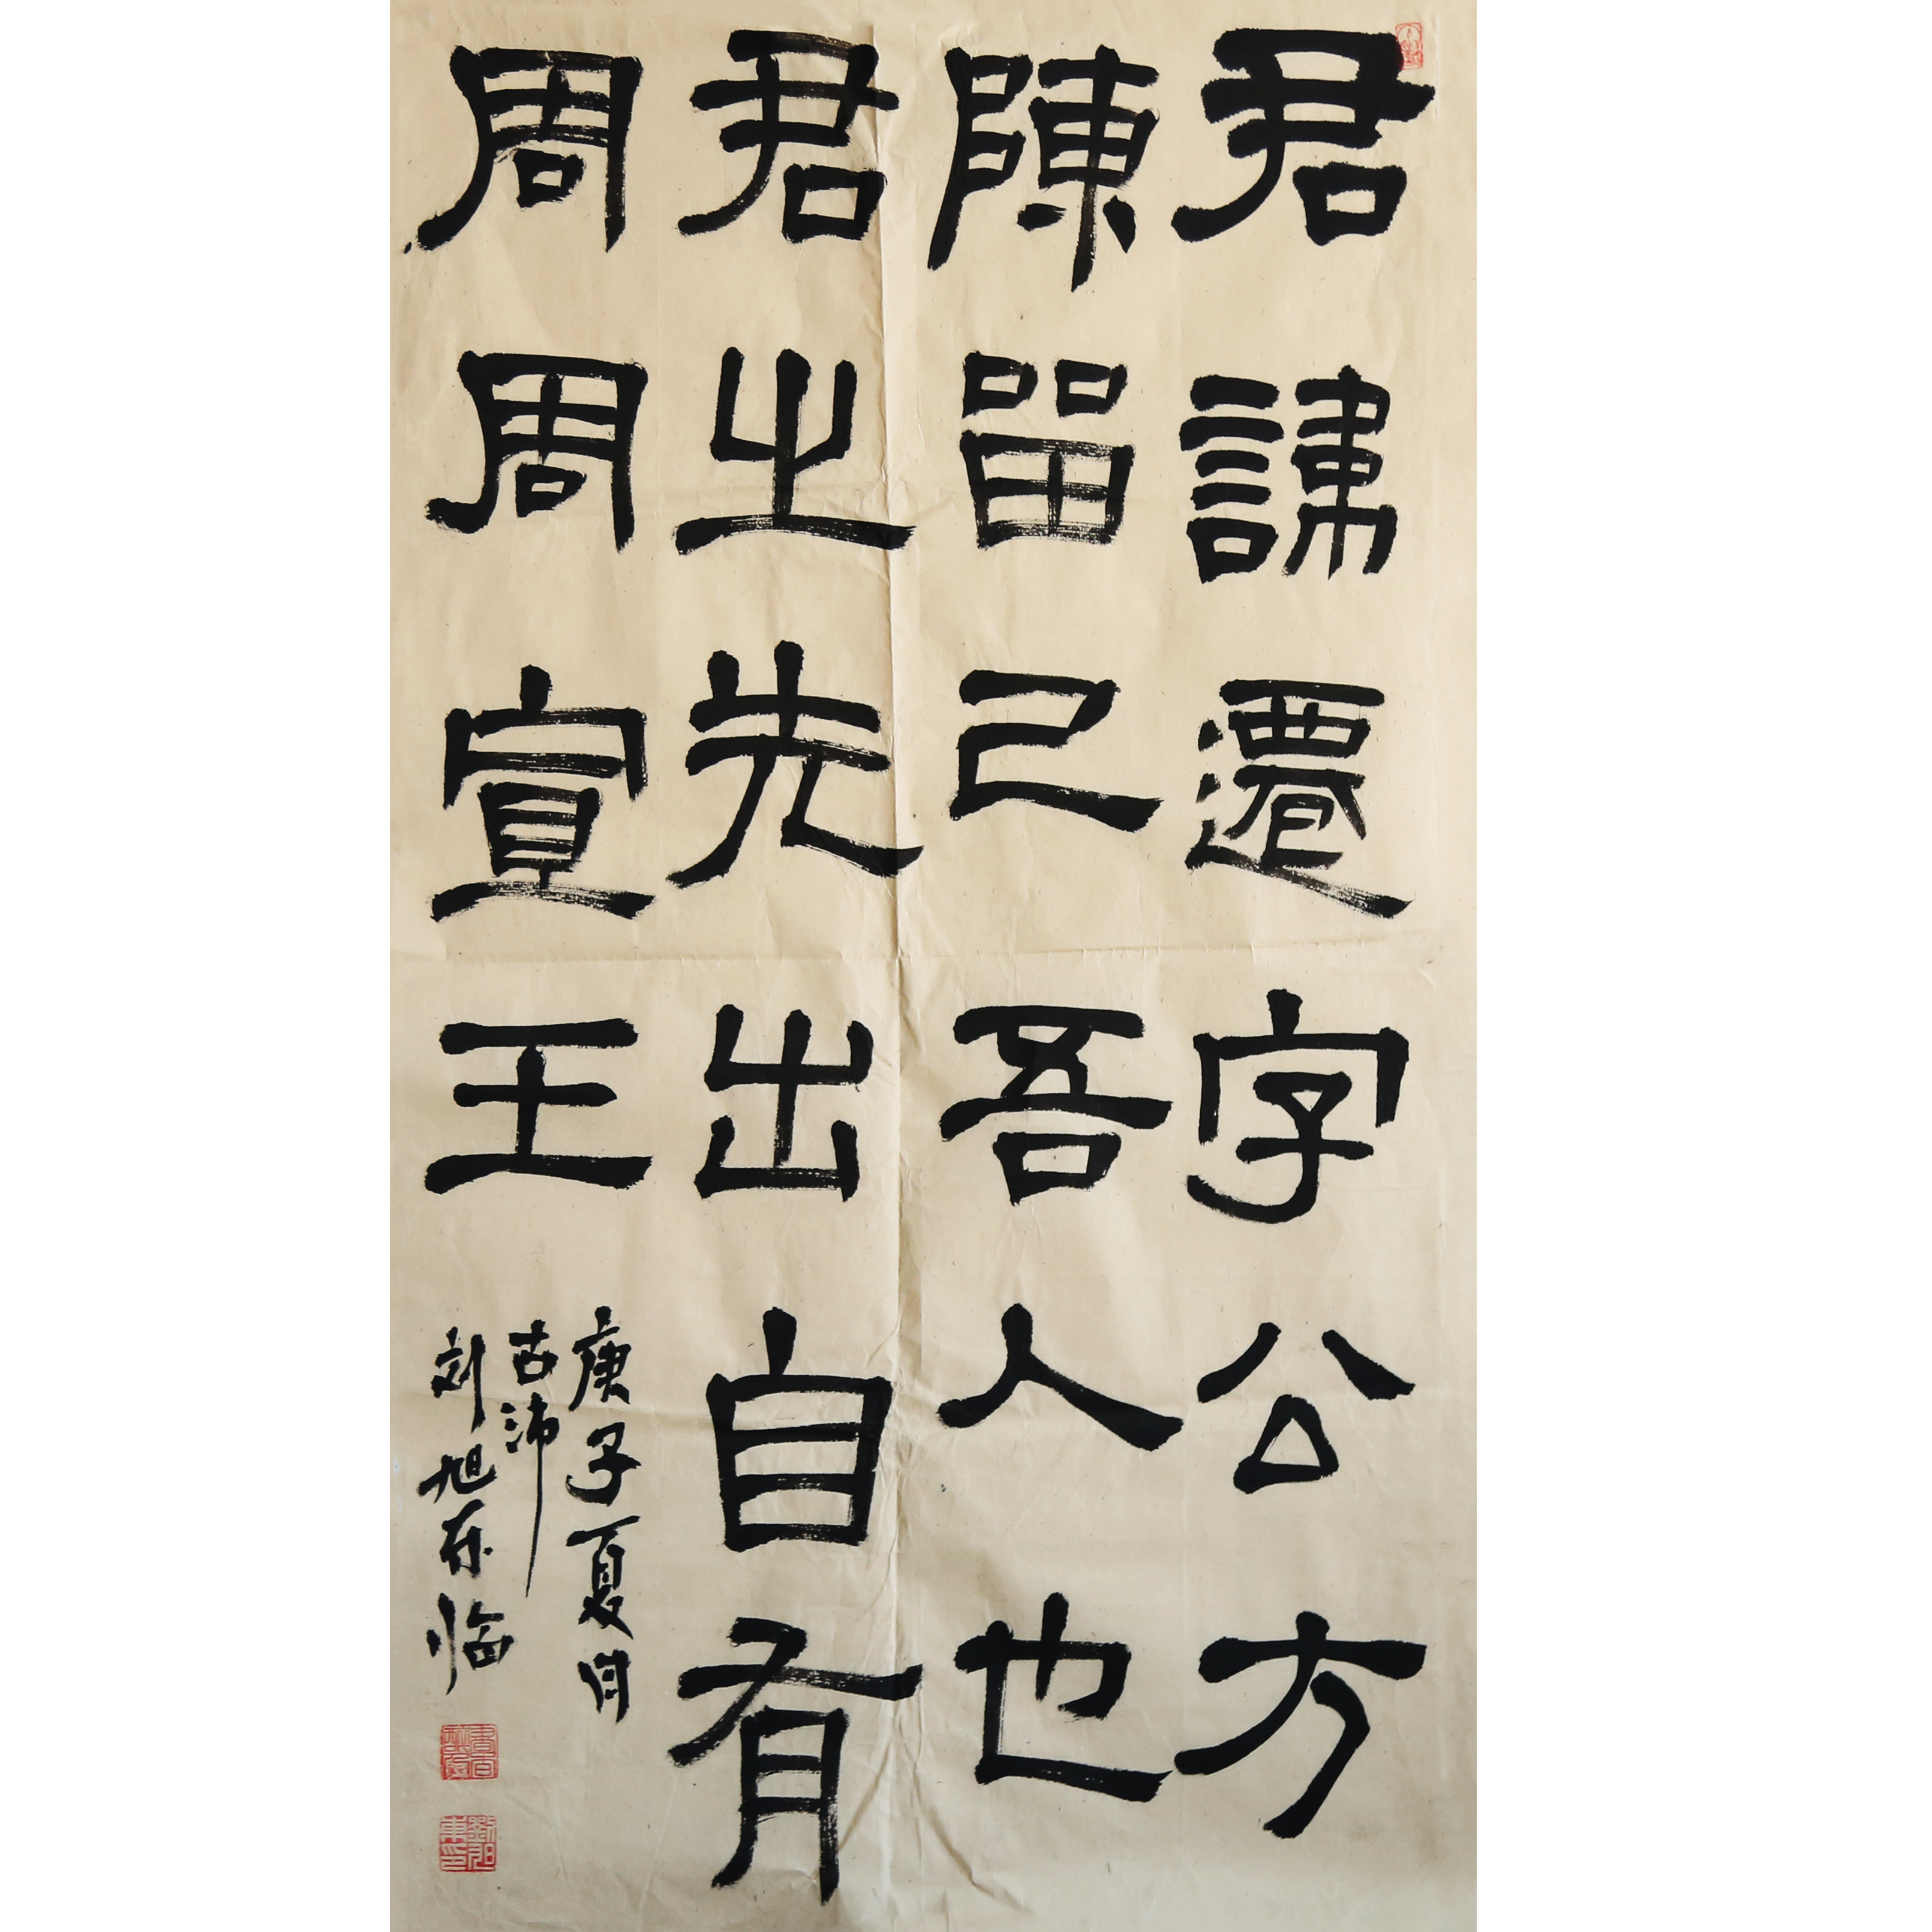 君諱遷字公方
陳留己吾人也
君之先出自有
周周宣王
庚子夏月
古沛
刘旭东临